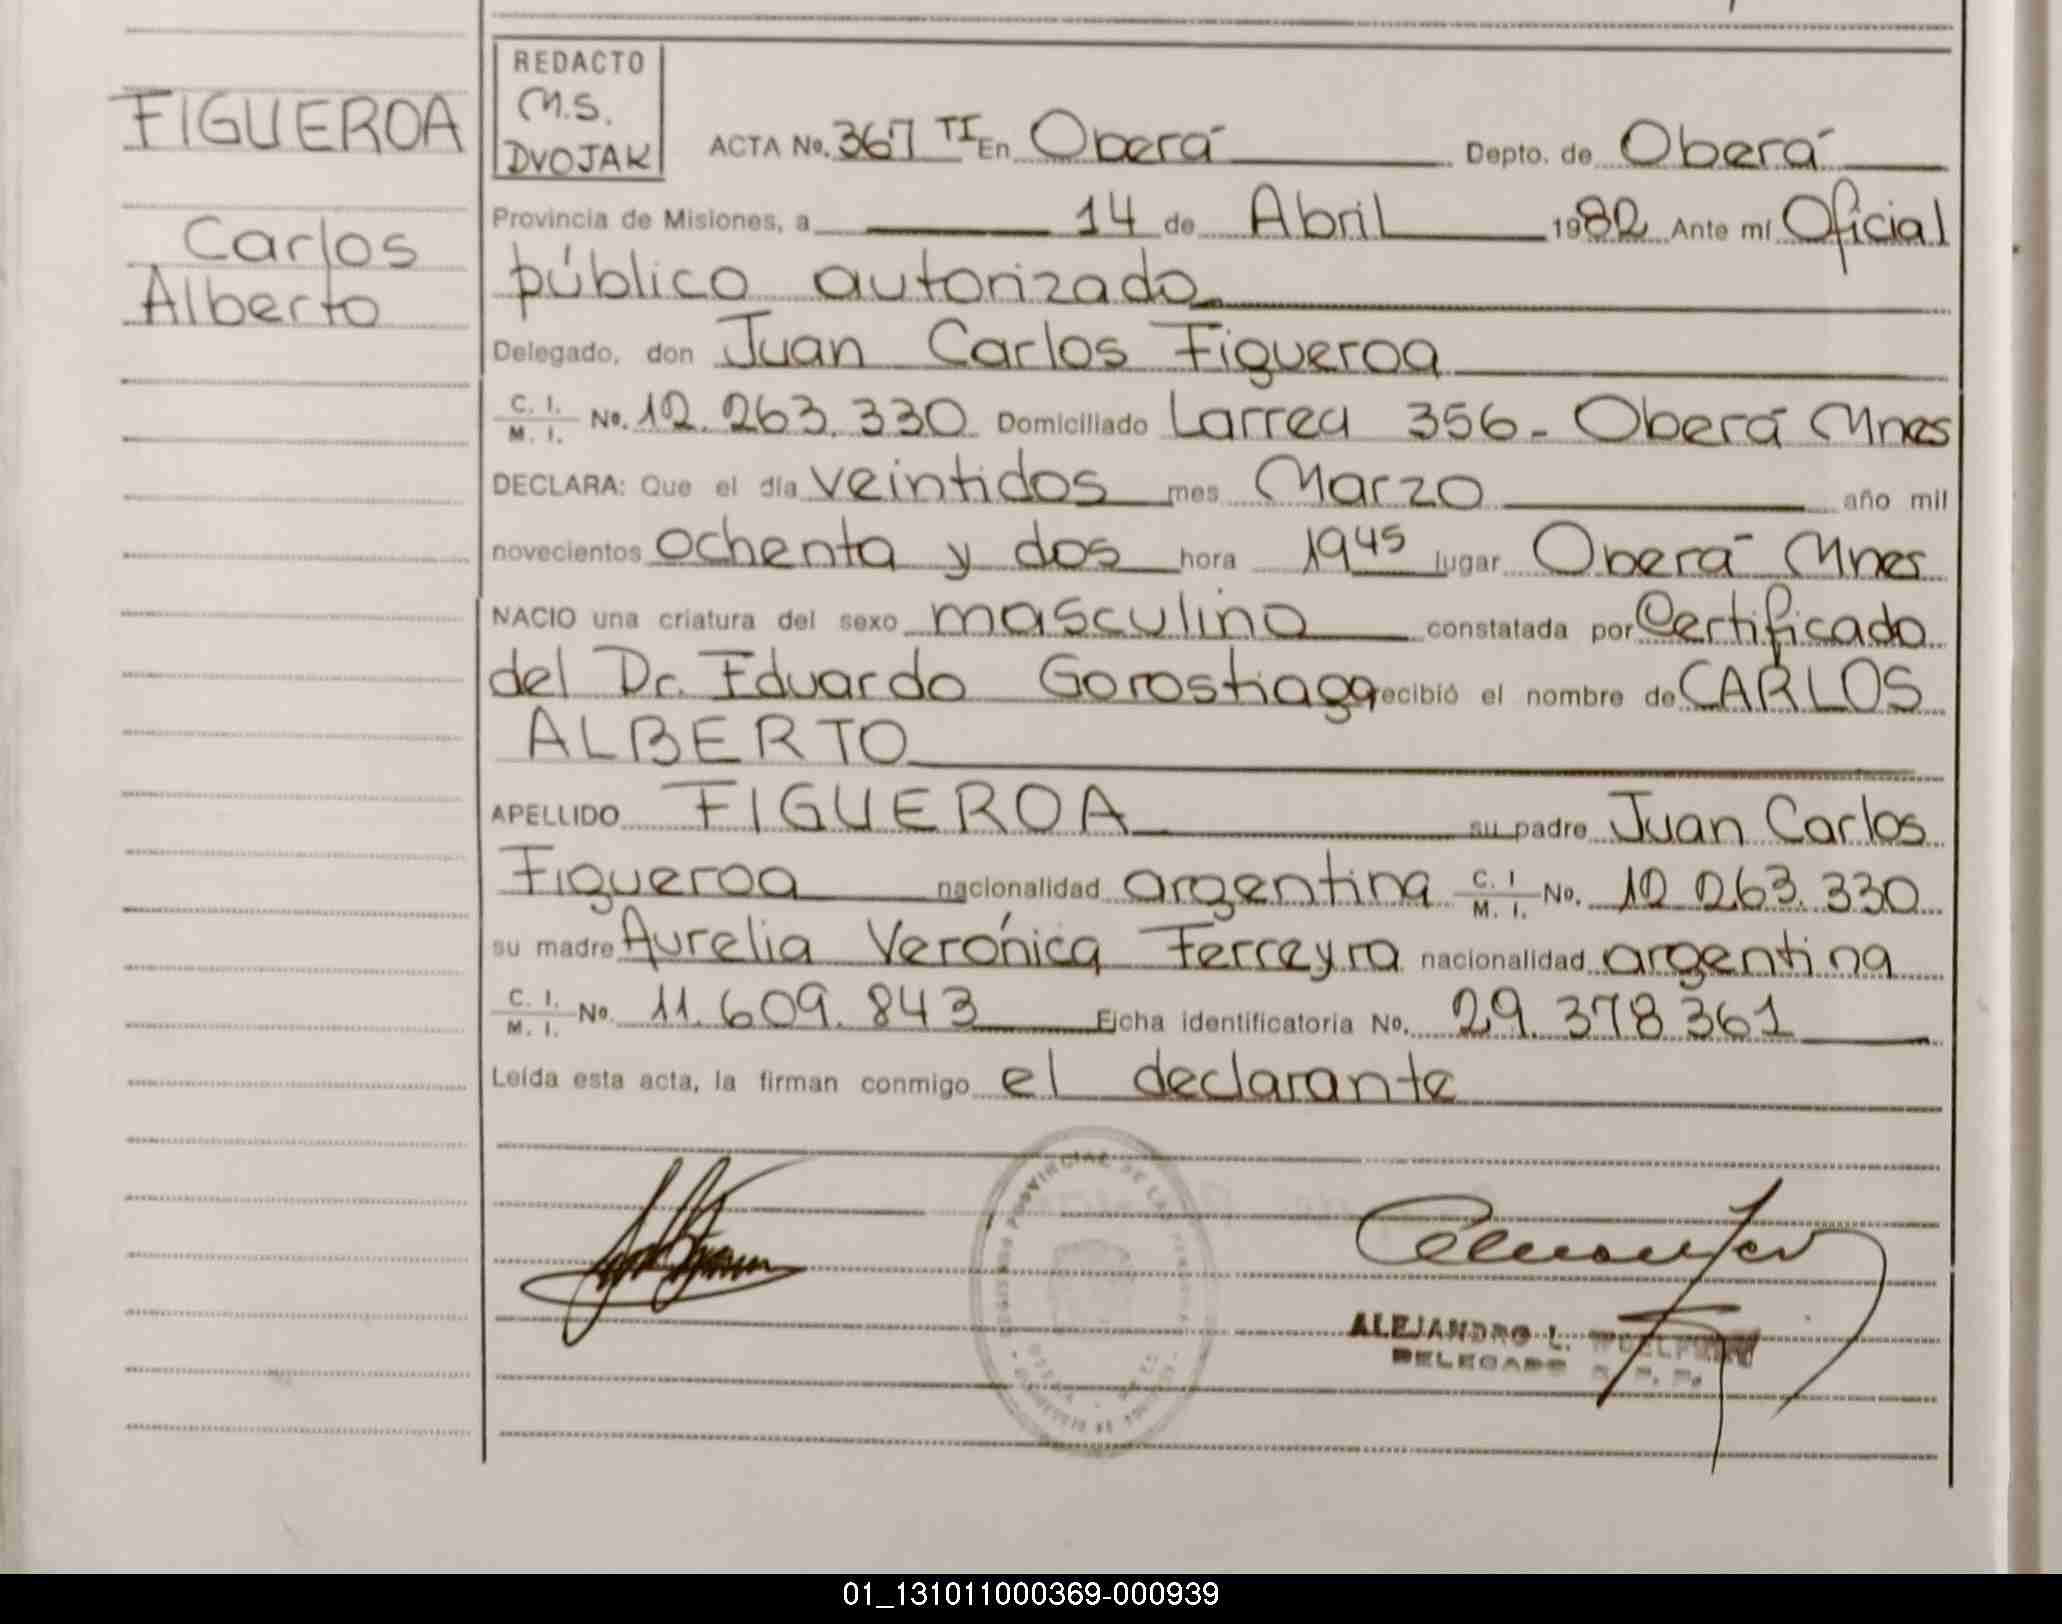 FIGUEROA
Carlos
Alberto
REDACTO
M.S.
DVOJAK
ACTA No. 367 TI En Oberá Depto. de Oberá
Provincia de Misiones, a 14 de Abril 1982 Ante mí Oficial
público autorizado
Delegado, don Juan Carlos Figueroa
C. I. / M. I. No. 12.263.330 Domiciliado Larrea 356 - Oberá Mnes
DECLARA: Que el día veintidos mes Marzo año mil
novecientos ochenta y dos hora 19 45 lugar Oberá Mnes
NACIO una criatura del sexo masculino constatada por Certificado
del Dr. Eduardo Gorostiaga recibió el nombre de CARLOS
ALBERTO
APELLIDO FIGUEROA su padre Juan Carlos
Figueroa nacionalidad argentina C. I / M. I. No. 12 263.330
su madre Aurelia Verónica Ferreyra nacionalidad argentina
C. I. / M. I. No. 11.609.843 Ficha identificatoria No. 29.378.361
Leída esta acta, la firman conmigo el declarante
ALEJANDRO L.
DELEGADO
01_131011000369-000939